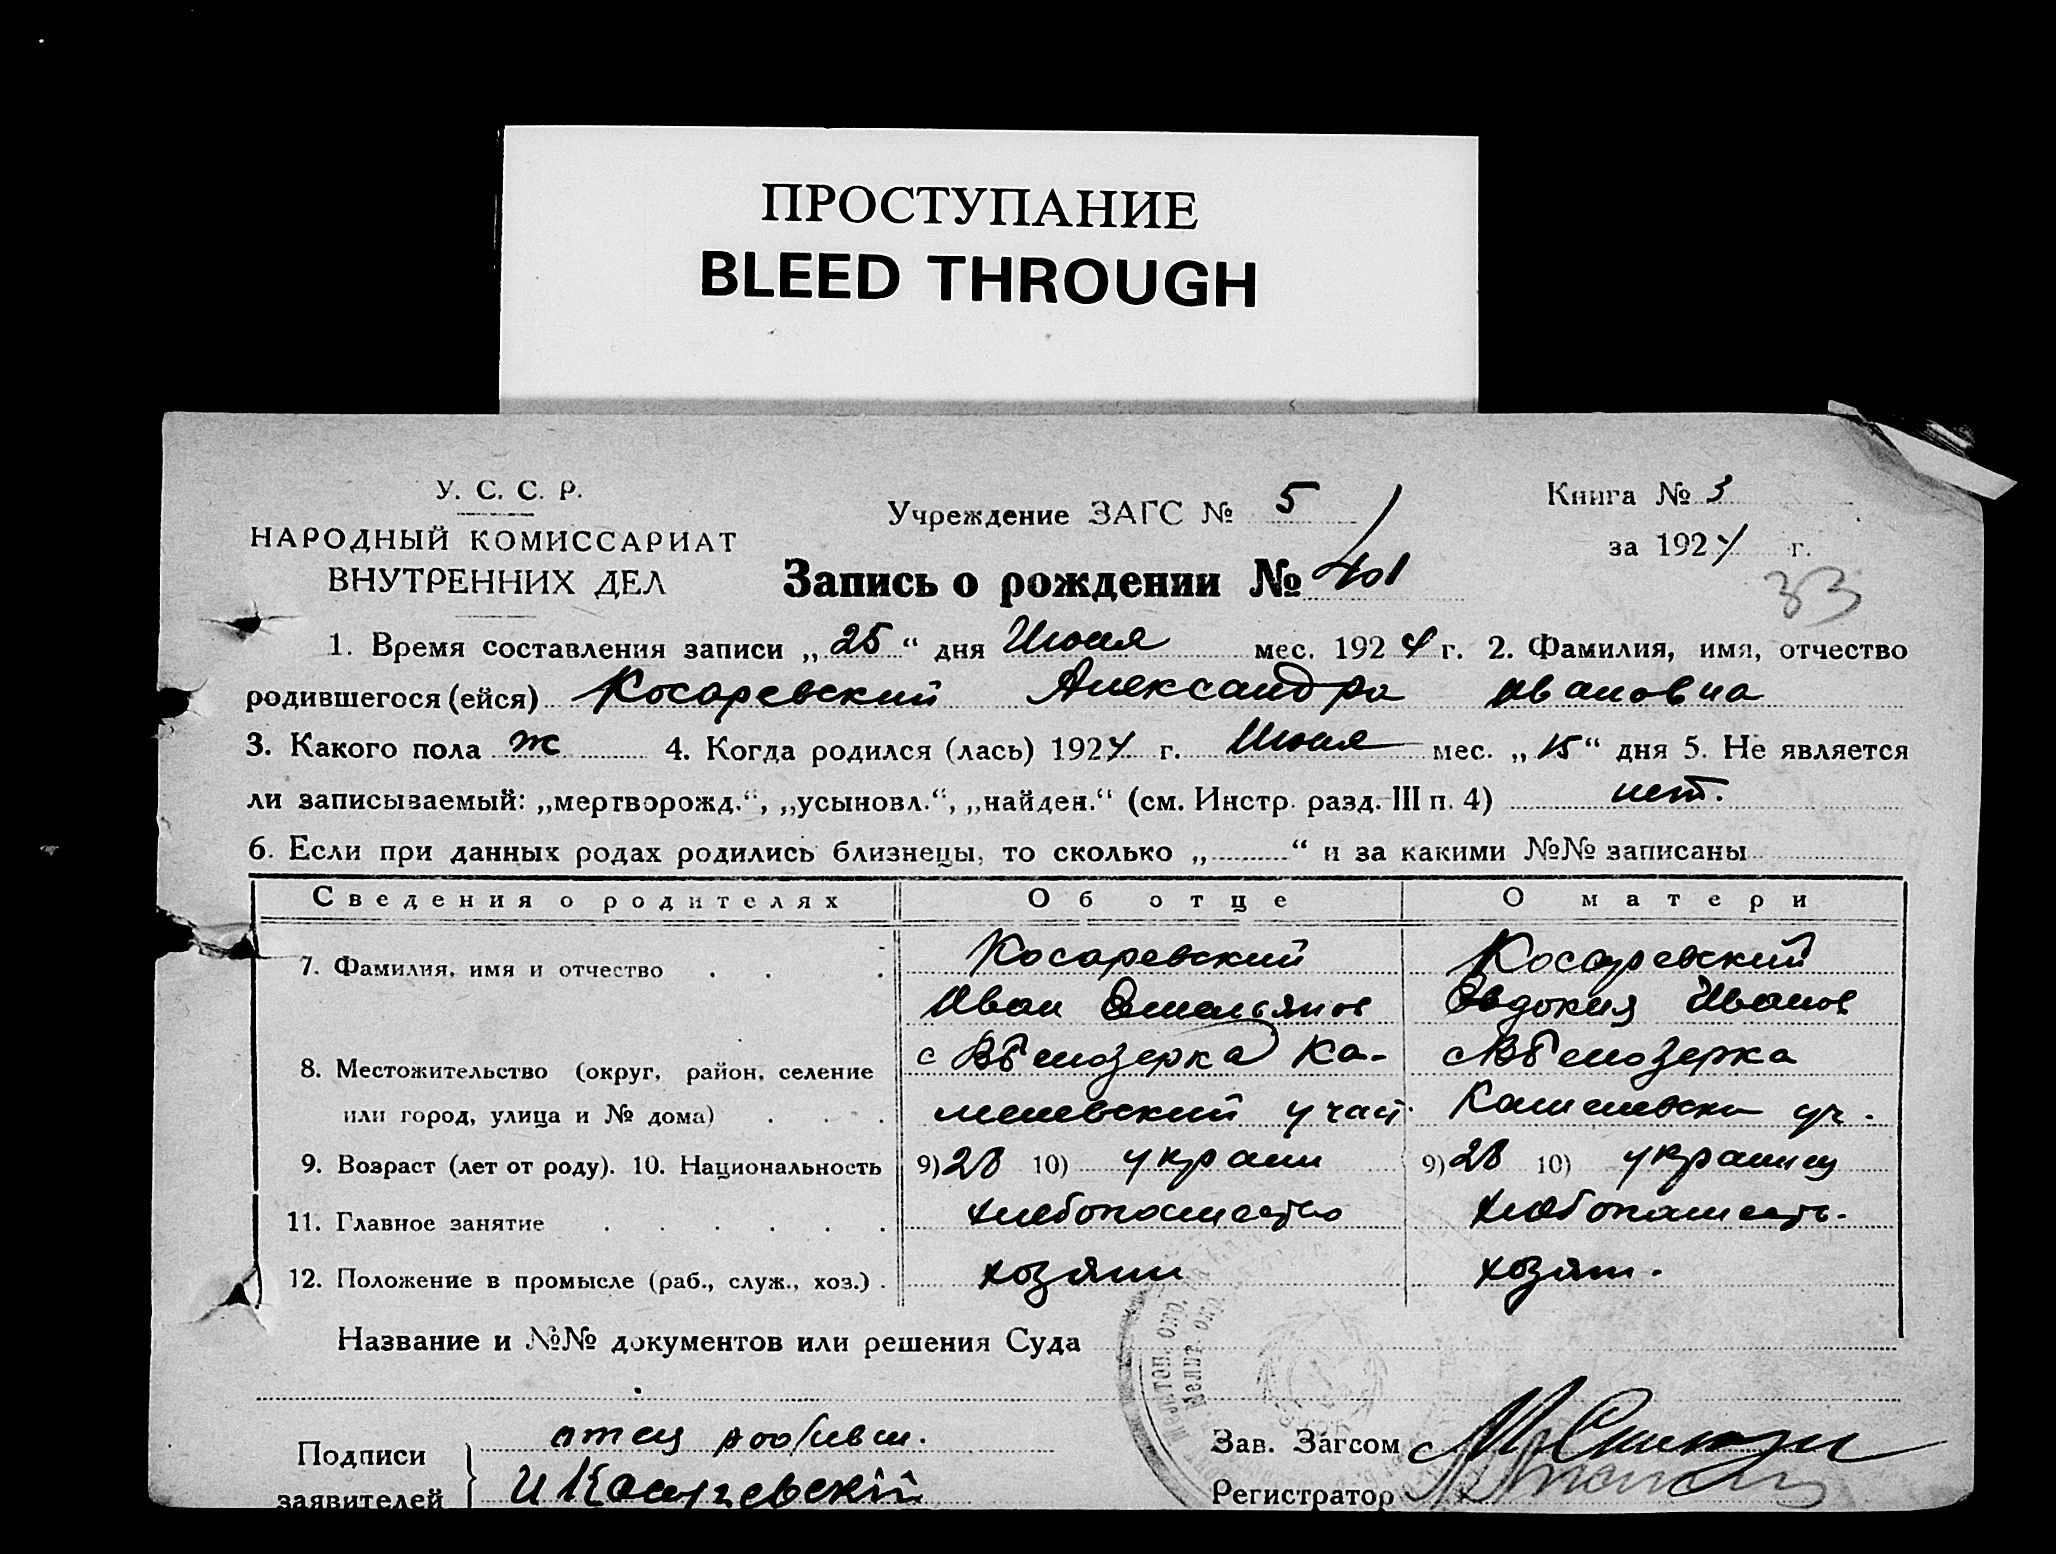 ПРОСТУПАНИЕ
BLEED THROUGH
У. С. С. Р.
НАРОДНЫЙ КОМИССАРИАТ
ВНУТРЕННИХ ДЕЛ
Учреждение ЗАГС № 5
Книга № 3
за 1924 г.
Запись о рождении № 401
33
1. Время составления записи „25“ дня Июля мес. 1924 г. 2. Фамилия, имя, отчество
родившегося (ейся) Косаревский Александра Ивановна
3. Какого пола ж 4. Когда родился (лась) 1924 г. Июля мес. „15“ дня 5. Не является
ли записываемый: „мертворожд.“, „усыновл.“, „найден.“ (см. Инстр. разд. III п. 4) нет.
6. Если при данных родах родились близнецы, то сколько „ “ и за какими №№ записаны
Сведения о родителях Об отце О матери
7. Фамилия, имя и отчество Косаревский Косаревский
Иван Емельянов Евдокия Иванов
8. Местожительство (округ, район, селение с Вбелозерка Ка- с Вбелозерка
или город, улица и № дома) меневский участ. Каменевски уч.
9. Возраст (лет от роду). 10. Национальность 9) 28 10) украин 9) 28 10) украинц
11. Главное занятие хлебопашество хлебопашеств.
12. Положение в промысле (раб., служ., хоз.) хозяин хозяин.
Название и №№ документов или решения Суда
Подписи отец
заявителей И Косаревскій
Зав. Загсом
Регистратор